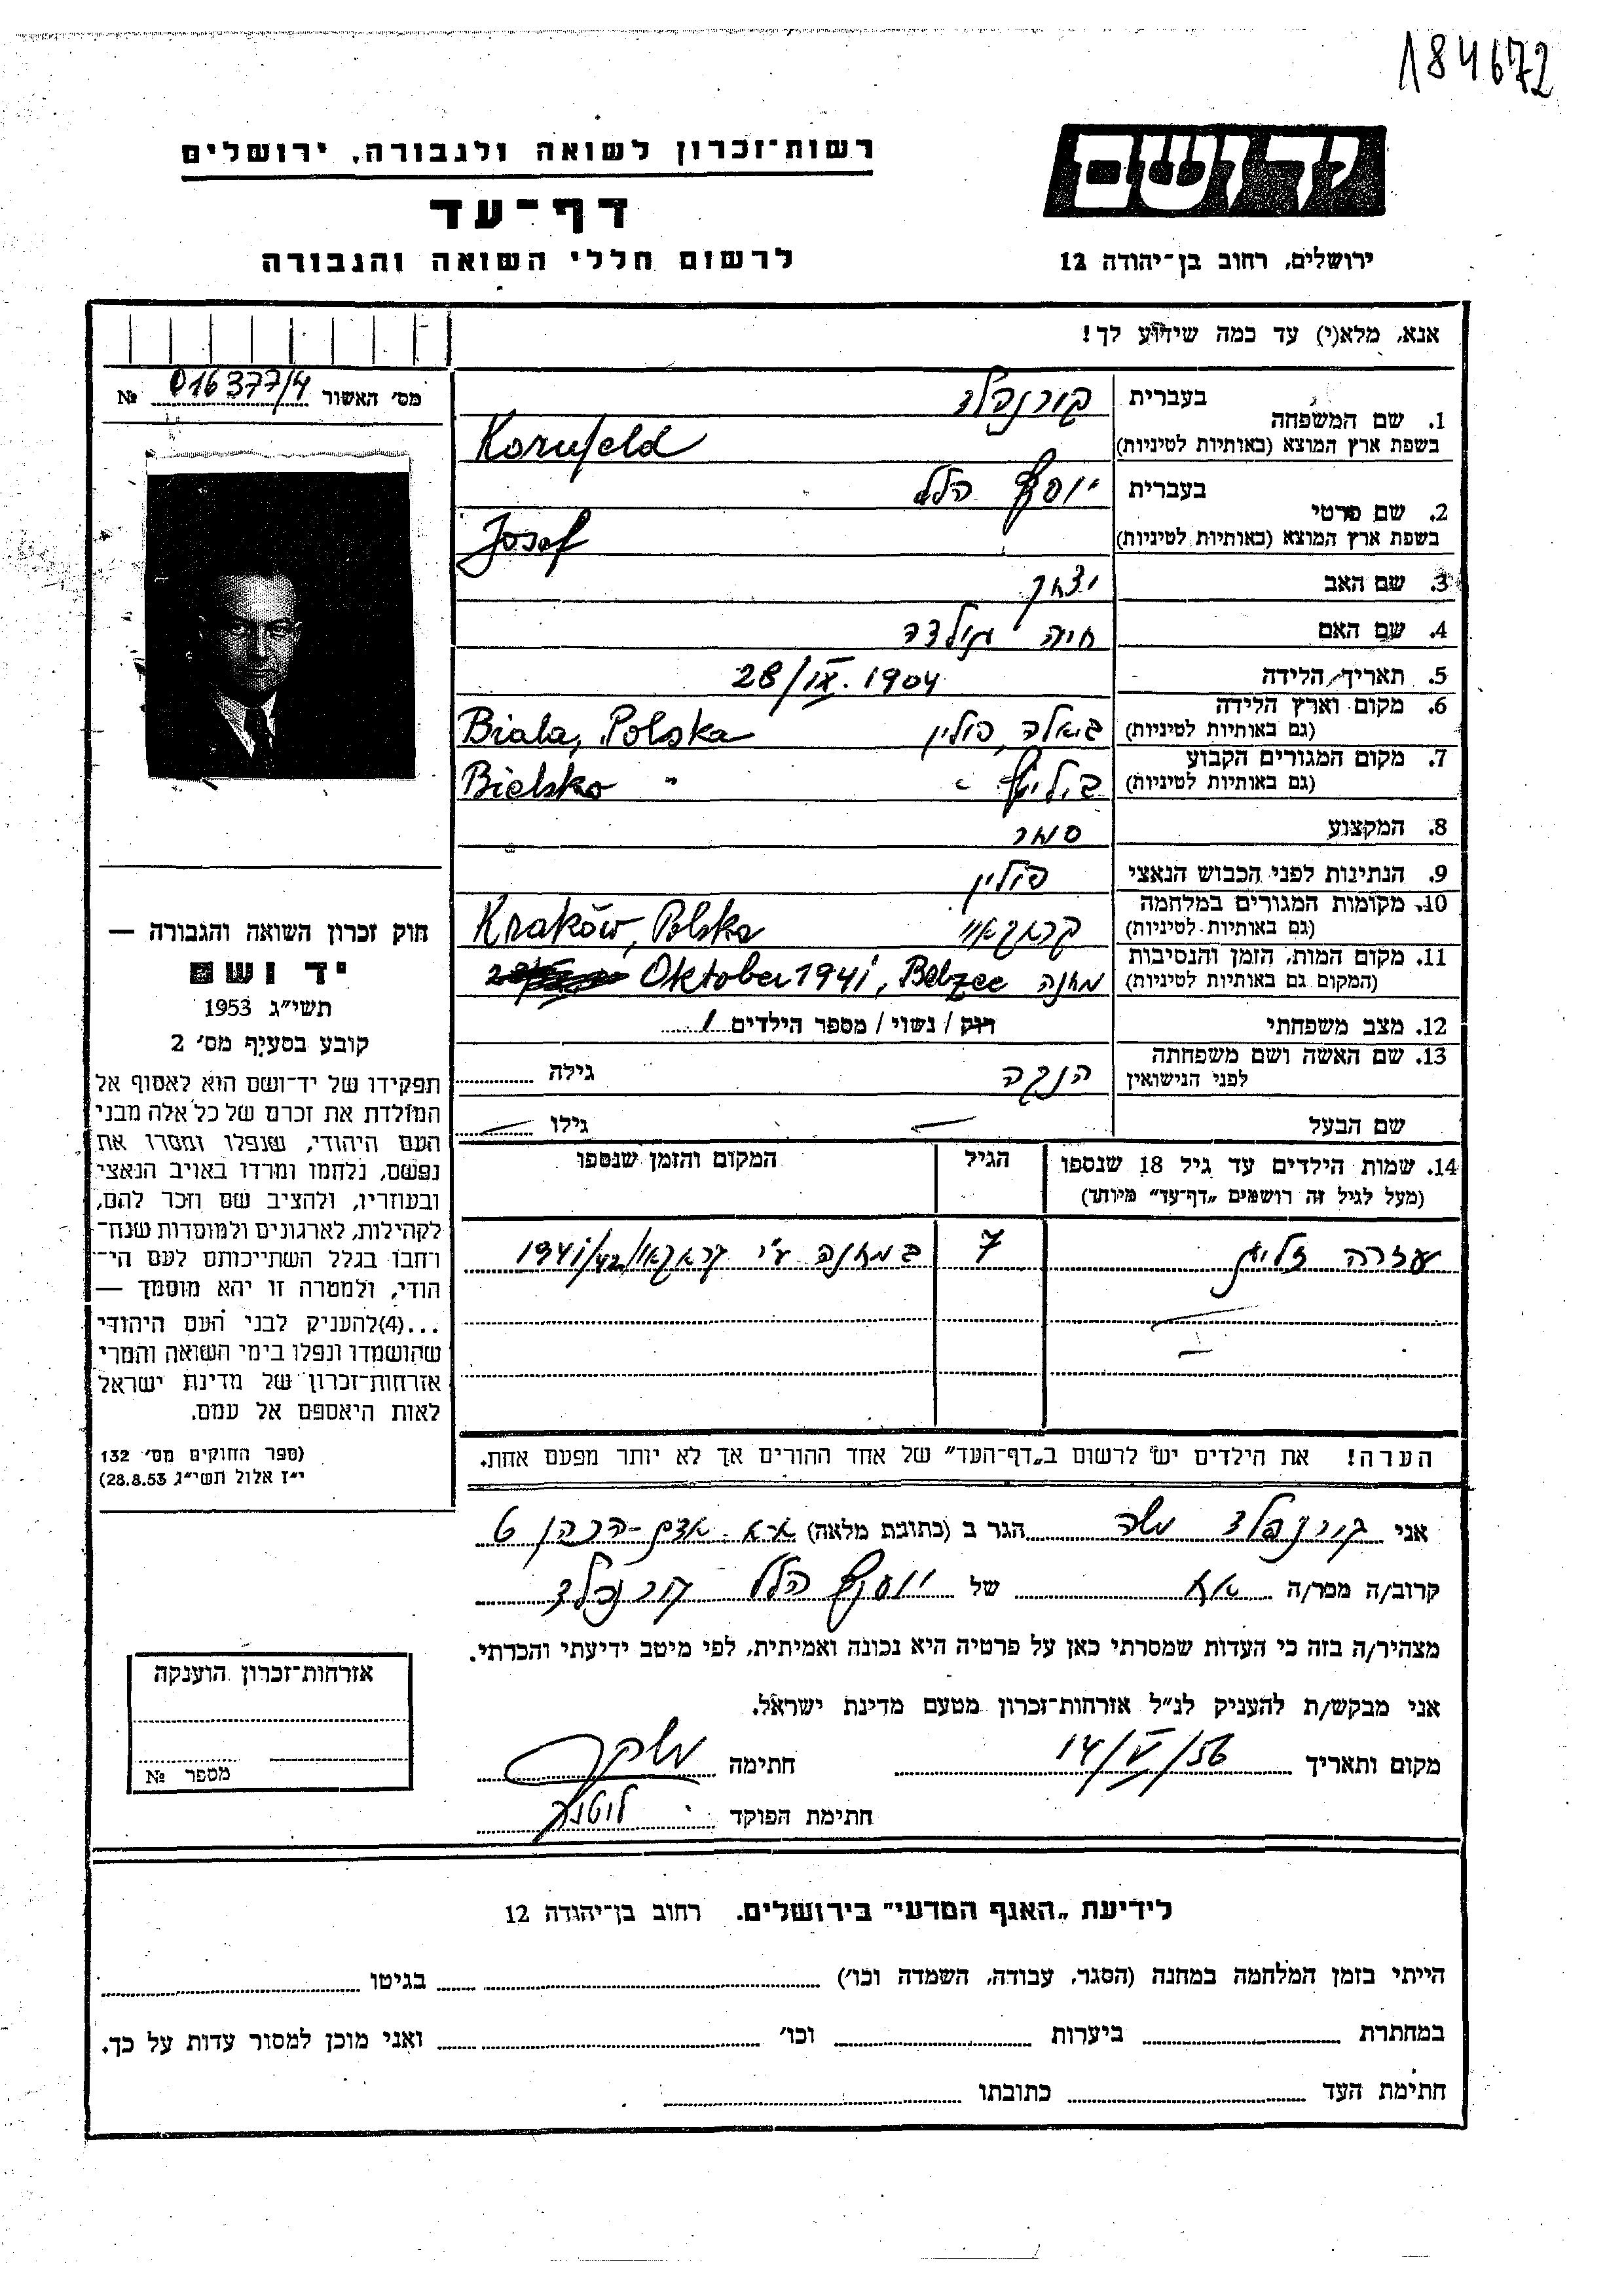 184672
יד ושם
ירושלים, רחוב בן־יהודה 12
רשות־זכרון לשואה ולגבורה, ירושלים
דף־עד
לרשום חללי השואה והגבורה
אנא, מלא(י) עד כמה שידוע לך!
מס׳ האשור 016377/4 №
1. שם המשפחה בעברית קורנפלד
בשפת ארץ המוצא (באותיות לטיניות) Kornfeld
2. שם פרטי בעברית יוסף הלל
בשפת ארץ המוצא (באותיות לטיניות) Josef
3. שם האב יצחק
4. שם האם חיה גולדה
5. תאריך הלידה 28/IX.1904
6. מקום וארץ הלידה (גם באותיות לטיניות) ביאלה, פולין Biala, Polska
7. מקום המגורים הקבוע (גם באותיות לטיניות) ביליץ " Bielsko "
8. המקצוע סוחר
9. הנתינות לפני הכבוש הנאצי פולין
10. מקומות המגורים במלחמה (גם באותיות לטיניות) קראקאו Kraków, Polska
11. מקום המות, הזמן והנסיבות (המקום גם באותיות לטיניות) מחנה Oktober 1941, Belzec
12. מצב משפחתי רוק / נשוי / מספר הילדים 1
13. שם האשה ושם משפחתה לפני הנישואין הנקה גילה
שם הבעל — גילו —
14. שמות הילדים עד גיל 18 שנספו (מעל לגיל זה רושמים „דף־עד" מיוחד) הגיל המקום והזמן שנספו
עזרה זליג 7 במחנה ע״י קראקאו 1941/42
הערה! את הילדים יש לרשום ב„דף־העד" של אחד ההורים אך לא יותר מפעם אחת.
חוק זכרון השואה והגבורה —
יד ושם
תשי״ג 1953
קובע בסעיף מס׳ 2
תפקידו של יד־ושם הוא לאסוף אל
המולדת את זכרם של כל אלה מבני
העם היהודי, שנפלו ומסרו את
נפשם, נלחמו ומרדו באויב הנאצי
ובעוזריו, ולהציב שם וזכר להם,
לקהילות, לארגונים ולמוסדות שנח־
רחבו בגלל השתייכותם לעם הי־
הודי, ולמטרה זו יהא מוסמך —
...(4)להעניק לבני העם היהודי
שהושמדו ונפלו בימי השואה והמרי
אזרחות־זכרון של מדינת ישראל
לאות היאספם אל עמם.
(ספר החוקים מס׳ 132
י״ז אלול תשי״ג 28.8.53)
אני קורנפלד משה הגר ב (כתובת מלאה) ת״א. אדם־הכהן 6
קרוב/ה מכר/ה אח של יוסף הלל קורנפלד
מצהיר/ה בזה כי העדות שמסרתי כאן על פרטיה היא נכונה ואמיתית, לפי מיטב ידיעתי והכרתי.
אני מבקש/ת להעניק לנ״ל אזרחות־זכרון מטעם מדינת ישראל.
מקום ותאריך 14/V/56 חתימה
חתימת הפוקד
אזרחות־זכרון הוענקה
מספר №
לידיעת „האגף המדעי" בירושלים. רחוב בן־יהודה 12
הייתי בזמן המלחמה במחנה (הסגר, עבודה, השמדה וכו׳) בגיטו
במחתרת ביערות וכו׳ ואני מוכן למסור עדות על כך.
חתימת העד כתובתו